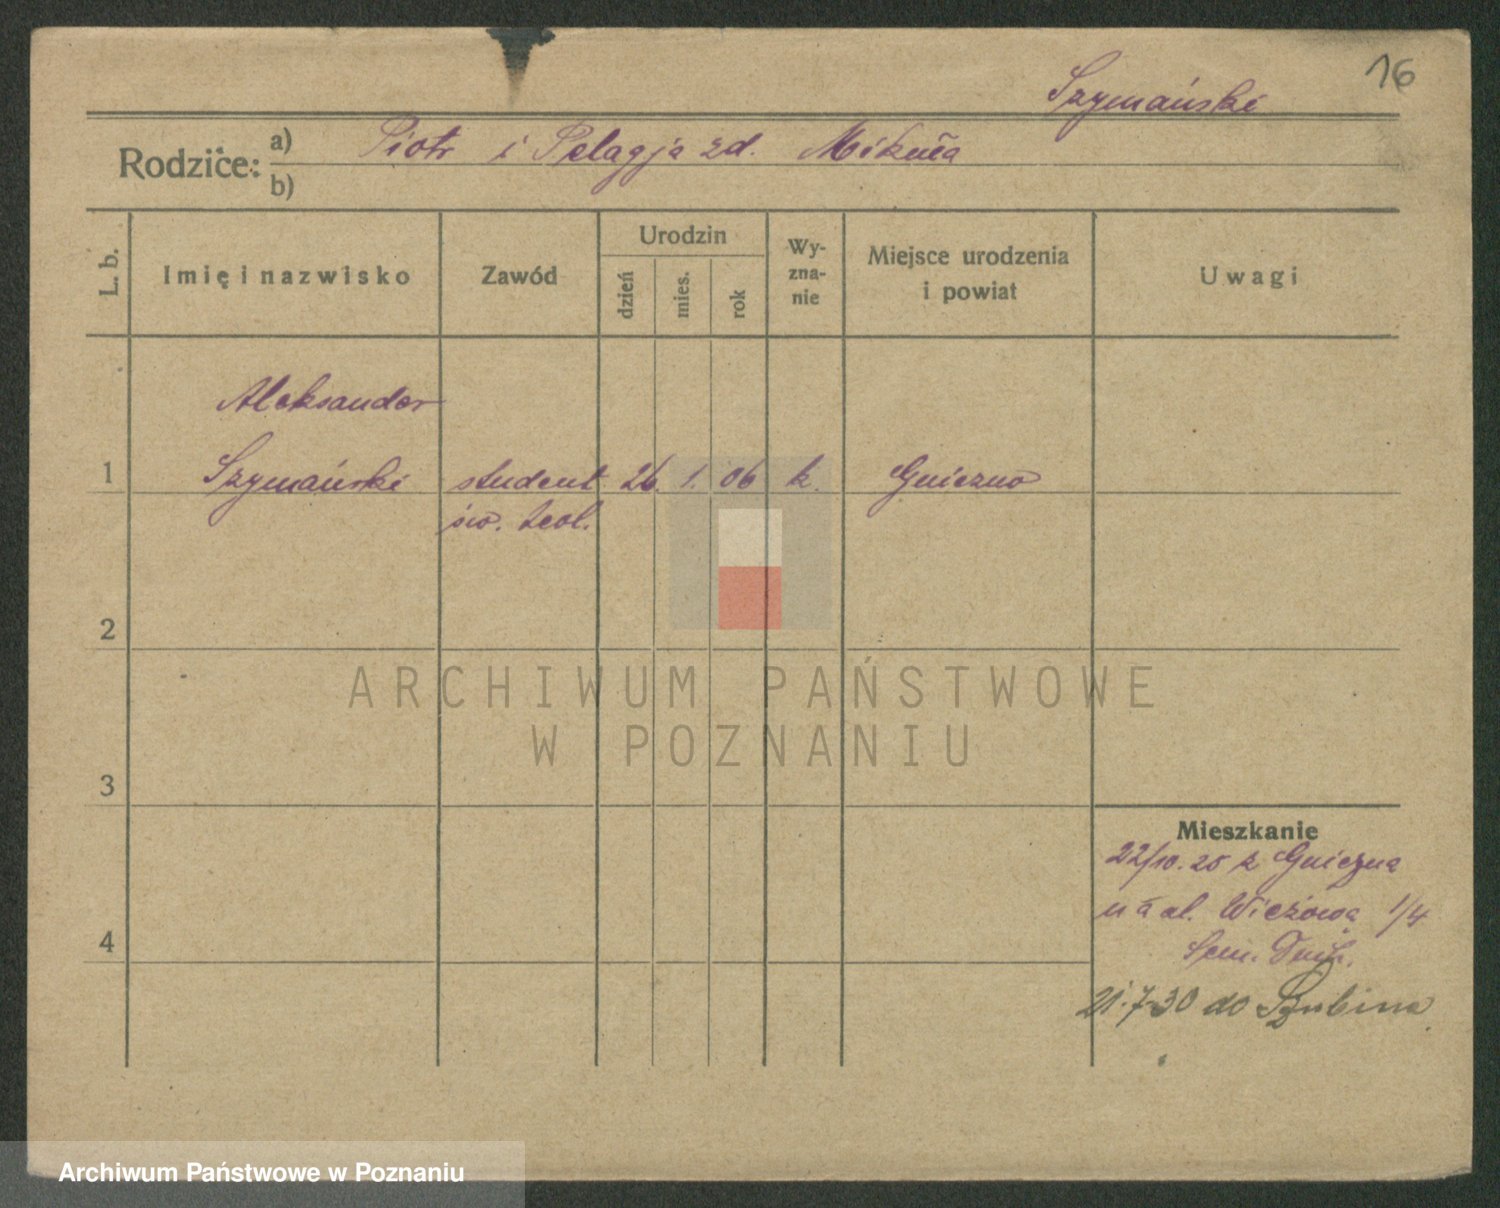 16
Szymański
Rodzice:
a) Piotr i Pelagja zd. Mikuła
b)
L. b.
Imię i nazwisko
Zawód
Urodzin
dzień
mies.
rok
Wy-
zna-
nie
Miejsce urodzenia
i powiat
Uwagi
Aleksander
1 Szymański student 26. 1. 06 k. Gniezno
św. teol.
2
3
4
Mieszkanie
22/10. 25 z Gniezna
na ul. Wieżowa 1/4
Sem. Duch.
21.7-30 do Szubina
ARCHIWUM PAŃSTWOWE
W POZNANIU
Archiwum Państwowe w Poznaniu